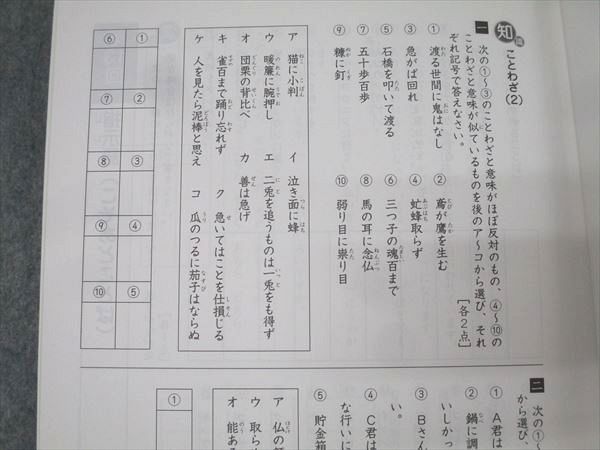 知識 ことわざ(2)
一 次の①～③のことわざと意味がほぼ反対のもの、④～⑩の
ことわざと意味が似ているものを後のア～コから選び、それ
ぞれ記号で答えなさい。
[各2点]
① 渡る世間に鬼はなし
② 鳶が鷹を生む
③ 急がば回れ
④ 虻蜂取らず
⑤ 石橋を叩いて渡る
⑥ 三つ子の魂百まで
⑦ 五十歩百歩
⑧ 馬の耳に念仏
⑨ 糠に釘
⑩ 弱り目に祟り目
ア 猫に小判
イ 泣き面に蜂
ウ 暖簾に腕押し
エ 二兎を追うものは一兎をも得ず
オ 団栗の背比べ
カ 善は急げ
キ 雀百まで踊り忘れず
ク 急いてはことを仕損じる
ケ 人を見たら泥棒と思え
コ 瓜のつるに茄子はならぬ
① ② ③ ④ ⑤
⑥ ⑦ ⑧ ⑨ ⑩
二 次の①～
から選び、
① A君は
② 鍋に調
いしかっ
③ Bさん
い。
④ C君は
な行いに
⑤ 貯金箱
ア 仏の
ウ 取らぬ
オ 能ある
①